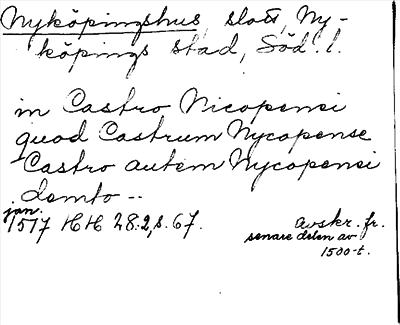 Nyköpingshus, slott, Ny-
köpings stad, Söd. l.
in Castro Nicopensi
quod Castrum Nycopense
Castro autem Nycopensi
demto --
jan.
1517 HH 28:2, s. 67.
Avskr. fr.
senare delen av
1500-t.